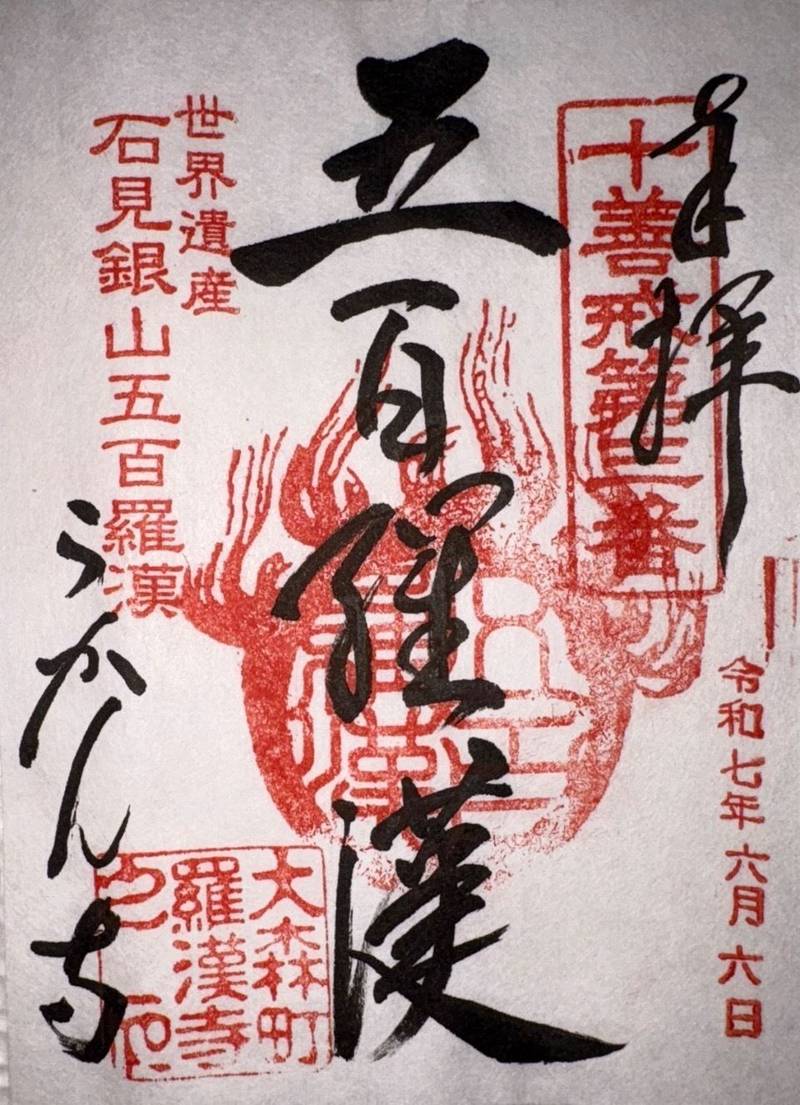 奉拝
十善戒第三番
令和七年六月六日
五百羅漢
五百羅漢
世界遺産
石見銀山五百羅漢
らかん寺
大森町
羅漢寺
之印